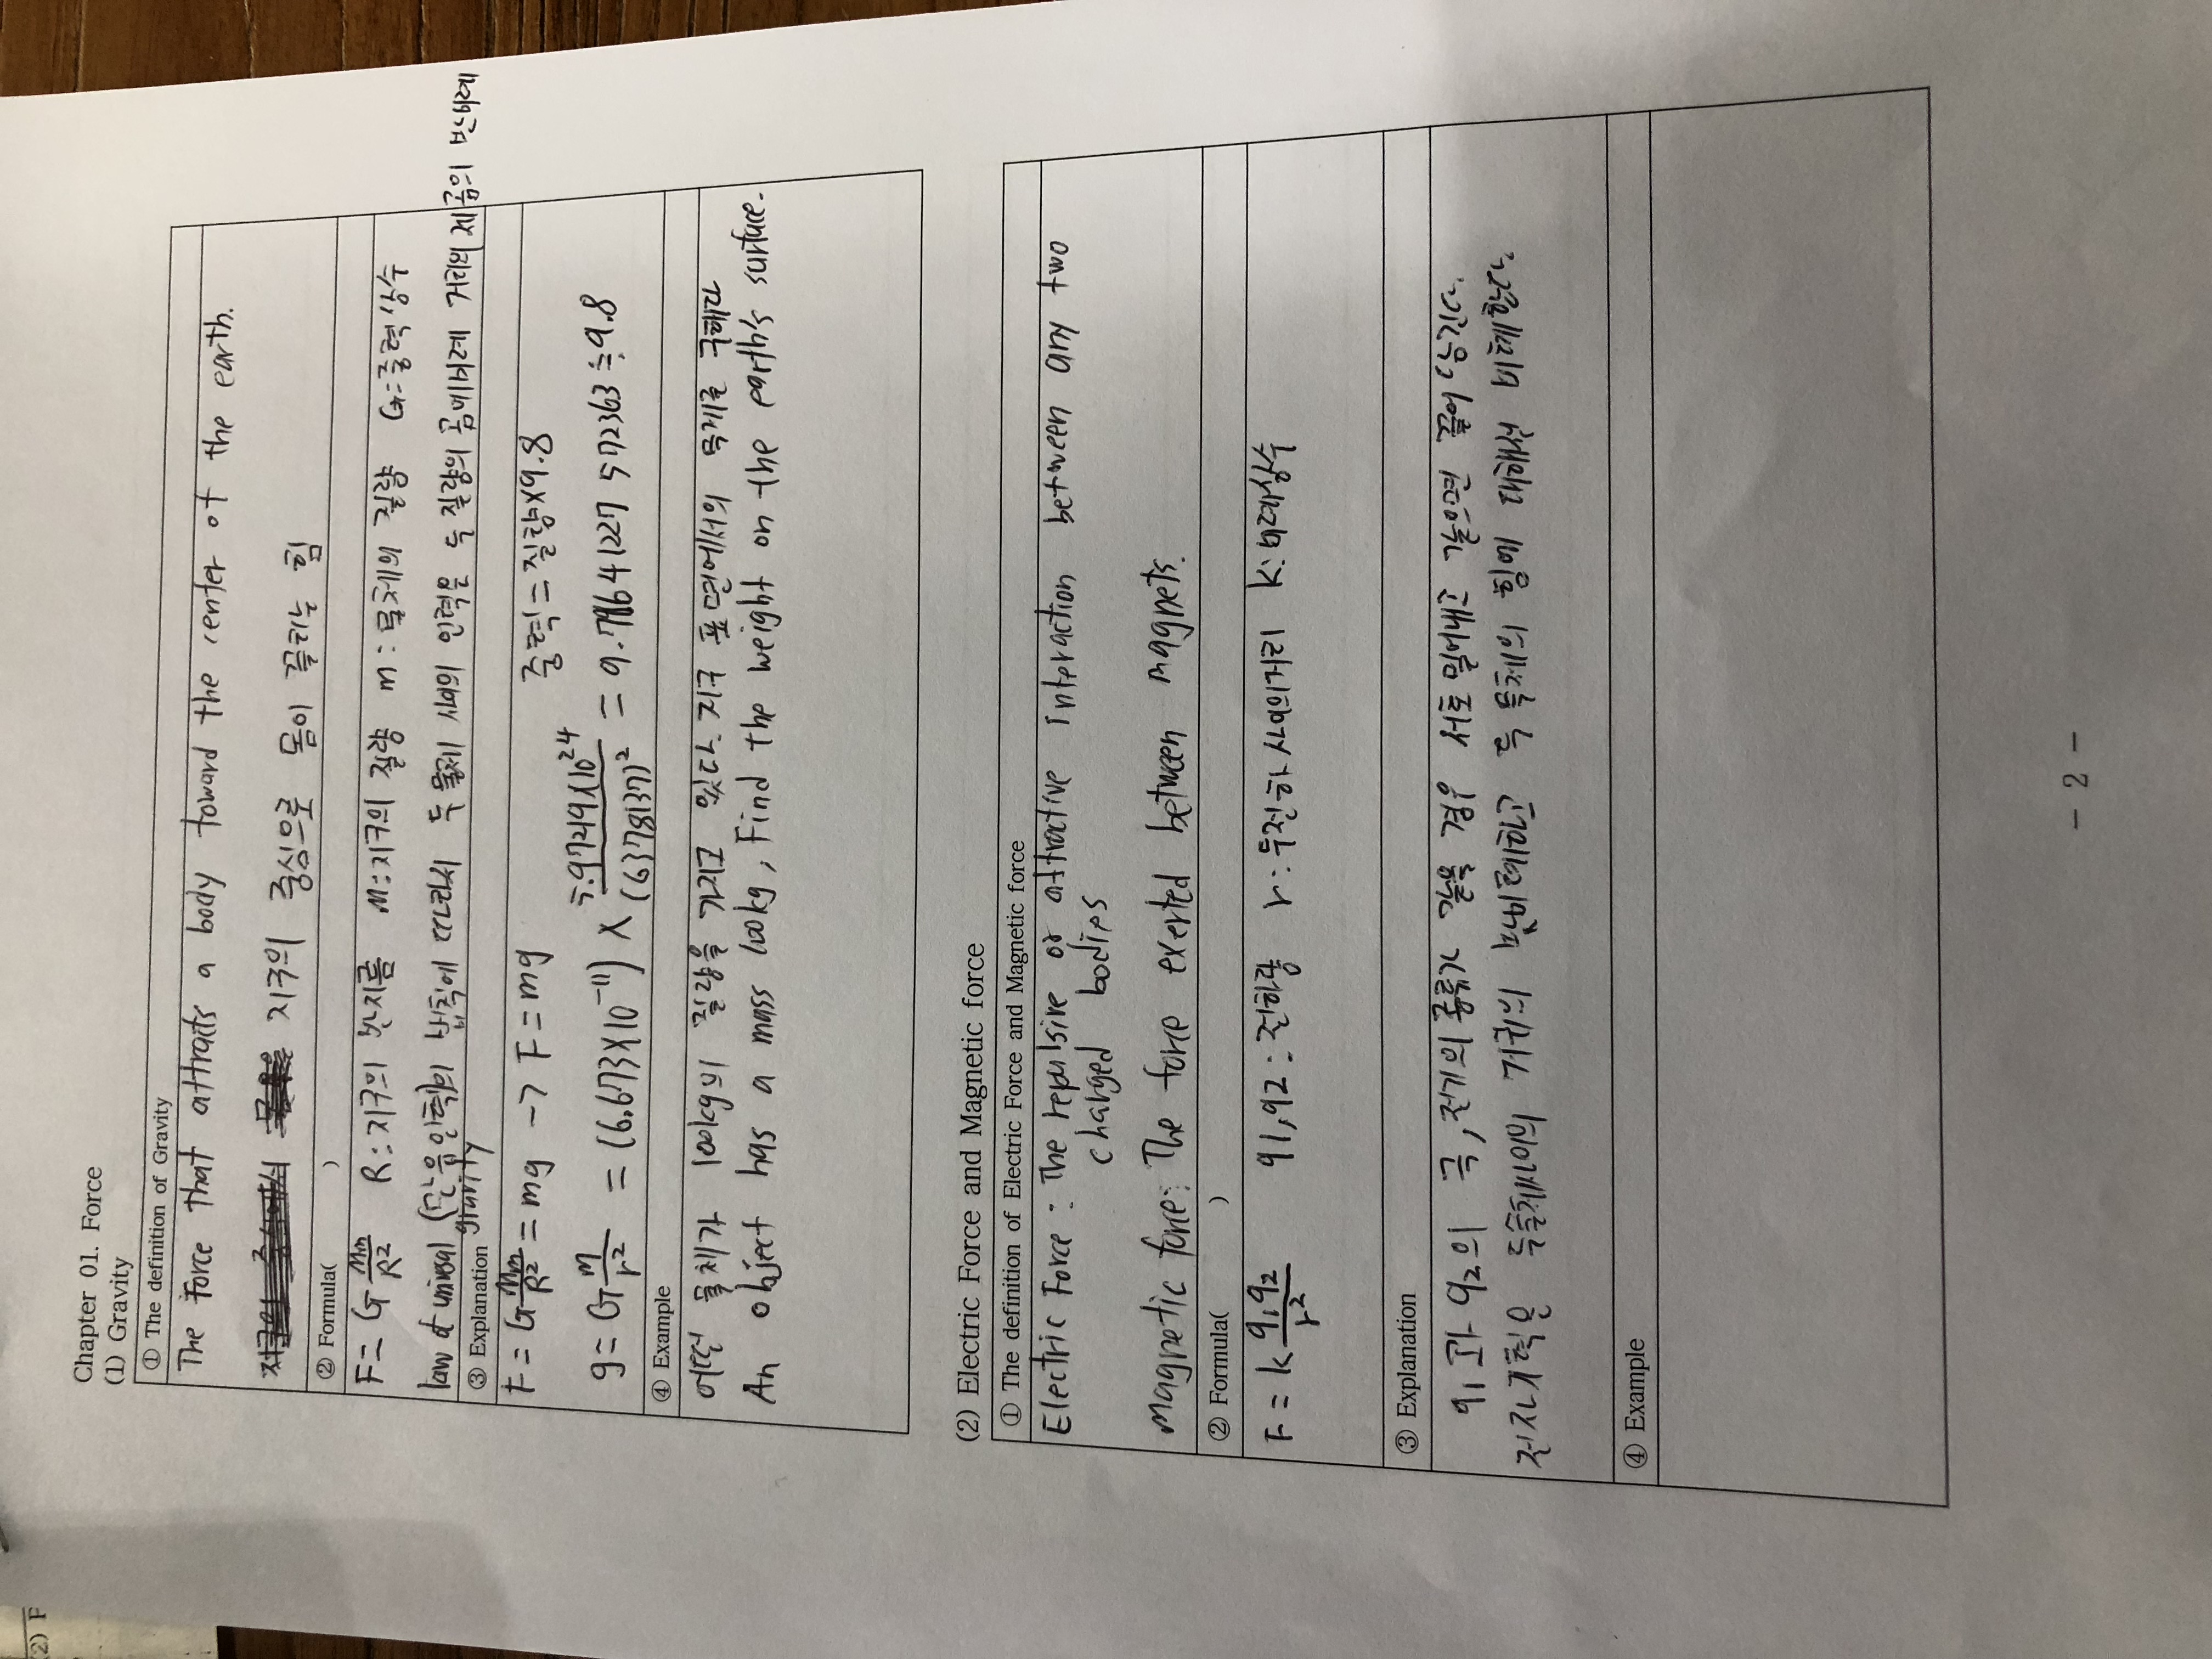 Chapter 01. Force
(1) Gravity
① The definition of Gravity
The Force that attracts a body toward the center of the earth.
지구의 중심으로 몸이 끌리는 힘
② Formula( )
F = G Mm/R² R:지구의 반지름 M:지구의 질량 m:물체의 질량 G=중력상수
law of universal gravity (만유인력의 법칙)에 따라서 두 물체 사이의 인력은 두 질량의 곱에비례 거리의 제곱의 반비례
③ Explanation
F = G Mm/R² = mg -> F = mg 중력 = 질량×9.8
g = G m/r² = (6.673×10⁻¹¹) × 5.97249×10²⁴/(6378137)² = 9.79641227 572363 ≒ 9.8
④ Example
어떤 물체가 100kg의 질량을 가지고 있다. 지구 표면에서의 무게를 구해라
An object has a mass 100kg, Find the weight on the earth's surface.
(2) Electric Force and Magnetic force
① The definition of Electric Force and Magnetic force
Electric Force : The repulsive or attractive interaction between any two
charged bodies
Magnetic force: The force exerted between magnets.
② Formula( )
F = k q₁q₂/r² q1,q2:전하량 r:두전하 사이의거리 K:비례상수
③ Explanation
q₁과 q₂의 극,전기의 종류가 같을 경우 서로 밀어내고 다르면 끌어당긴다.
전자기력은 두물체사이의 거리의 반비례하고 두 물체의 힘에 대해서 비례한다.
④ Example
- 2 -
(2) F